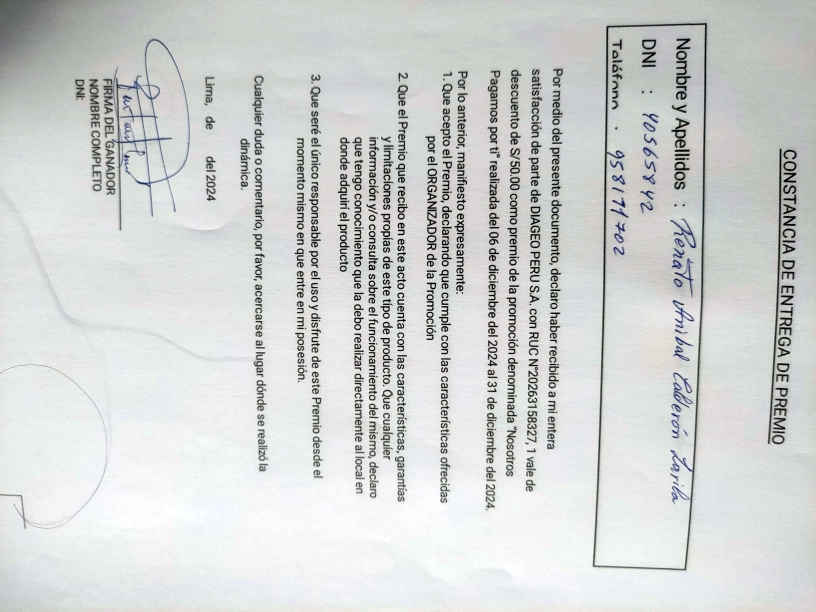 CONSTANCIA DE ENTREGA DE PREMIO
Nombre y Apellidos : Renato Anibal Calderón Zarila
DNI : 40565842
Teléfono : 958171702
Por medio del presente documento, declaro haber recibido a mi entera
satisfacción de parte de DIAGEO PERU S.A. con RUC N°20263158327, 1 vale de
descuento de S/50.00 como premio de la promoción denominada "Nosotros
Pagamos por ti" realizada del 06 de diciembre del 2024 al 31 de diciembre del 2024.
Por lo anterior, manifiesto expresamente:
1. Que acepto el Premio, declarando que cumple con las características ofrecidas
por el ORGANIZADOR de la Promoción
2. Que el Premio que recibo en este acto cuenta con las características, garantías
y limitaciones propias de este tipo de producto. Que cualquier
información y/o consulta sobre el funcionamiento del mismo, declaro
que tengo conocimiento que la debo realizar directamente al local en
donde adquirí el producto
3. Que seré el único responsable por el uso y disfrute de este Premio desde el
momento mismo en que entre en mi posesión.
Cualquier duda o comentario, por favor, acercarse al lugar dónde se realizó la
dinámica.
Lima, de del 2024
FIRMA DEL GANADOR
NOMBRE COMPLETO
DNI: